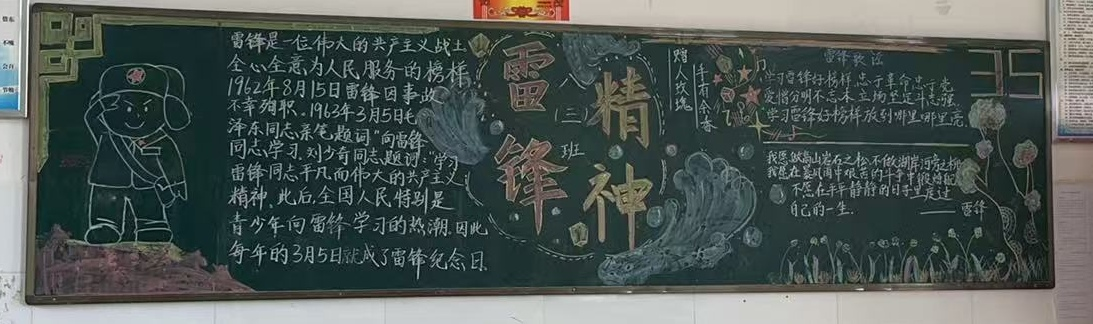 雷锋是一位伟大的共产主义战士
全心全意为人民服务的榜样
1962年8月15日雷锋因事故
不幸殉职.1963年3月5日毛
泽东同志亲笔题词"向雷锋
同志学习.刘少奇同志题词:"学习
雷锋同志平凡而伟大的共产主义
精神.此后,全国人民,特别是
青少年向雷锋学习的热潮.因此
每年的3月5日就成了雷锋纪念日.
雷锋
八(三)班
精神
赠人玫瑰
手有余香
雷锋歌
学习雷锋好榜样 忠于革命忠于党
爱憎分明不忘本 立场坚定斗志强
学习雷锋好榜样 放到哪里哪里亮
35
我愿做高山岩石之松,不做湖岸河旁之柳
我愿在暴风雨中艰苦的斗争中锻炼
不愿在平平静静的日子里度过
自己的一生.
——雷锋